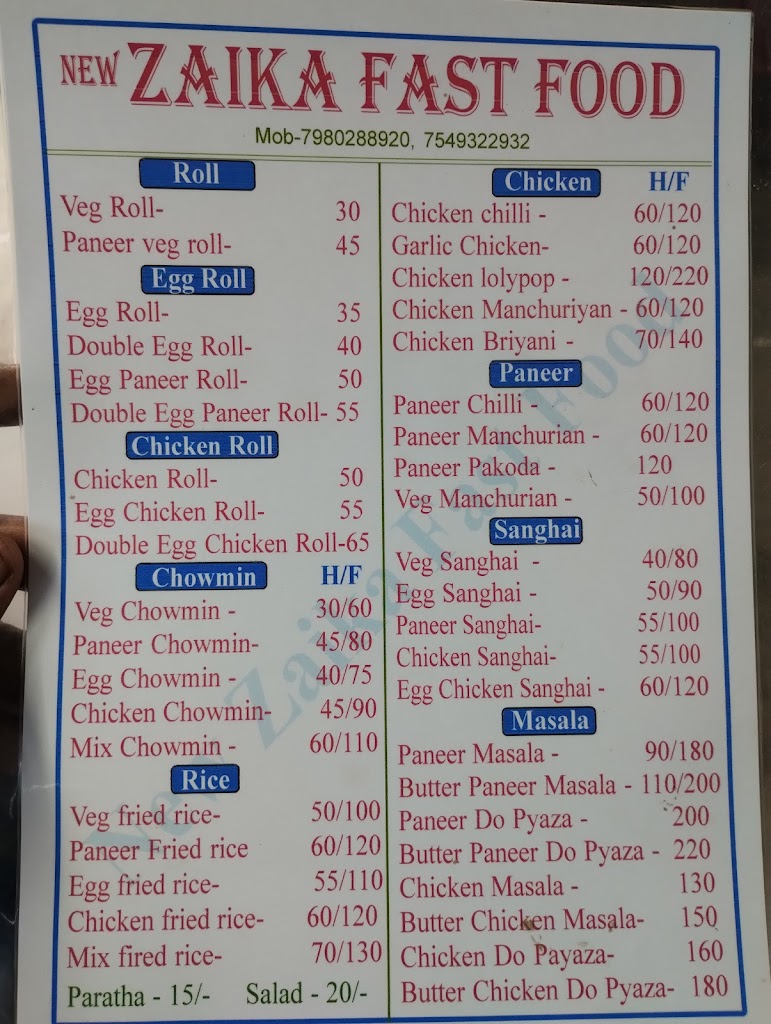 NEW ZAIKA FAST FOOD
Mob-7980288920, 7549322932
Roll
Veg Roll- 30
Paneer veg roll- 45
Egg Roll
Egg Roll- 35
Double Egg Roll- 40
Egg Paneer Roll- 50
Double Egg Paneer Roll- 55
Chicken Roll
Chicken Roll- 50
Egg Chicken Roll- 55
Double Egg Chicken Roll-65
Chowmin H/F
Veg Chowmin - 30/60
Paneer Chowmin- 45/80
Egg Chowmin - 40/75
Chicken Chowmin- 45/90
Mix Chowmin - 60/110
Rice
Veg fried rice- 50/100
Paneer Fried rice 60/120
Egg fried rice- 55/110
Chicken fried rice- 60/120
Mix fired rice- 70/130
Paratha - 15/- Salad - 20/-
Chicken H/F
Chicken chilli - 60/120
Garlic Chicken- 60/120
Chicken lolypop - 120/220
Chicken Manchuriyan - 60/120
Chicken Briyani - 70/140
Paneer
Paneer Chilli - 60/120
Paneer Manchurian - 60/120
Paneer Pakoda - 120
Veg Manchurian - 50/100
Sanghai
Veg Sanghai - 40/80
Egg Sanghai - 50/90
Paneer Sanghai- 55/100
Chicken Sanghai- 55/100
Egg Chicken Sanghai - 60/120
Masala
Paneer Masala - 90/180
Butter Paneer Masala - 110/200
Paneer Do Pyaza - 200
Butter Paneer Do Pyaza - 220
Chicken Masala - 130
Butter Chicken Masala- 150
Chicken Do Payaza- 160
Butter Chicken Do Pyaza- 180
New Zaika Fast Food